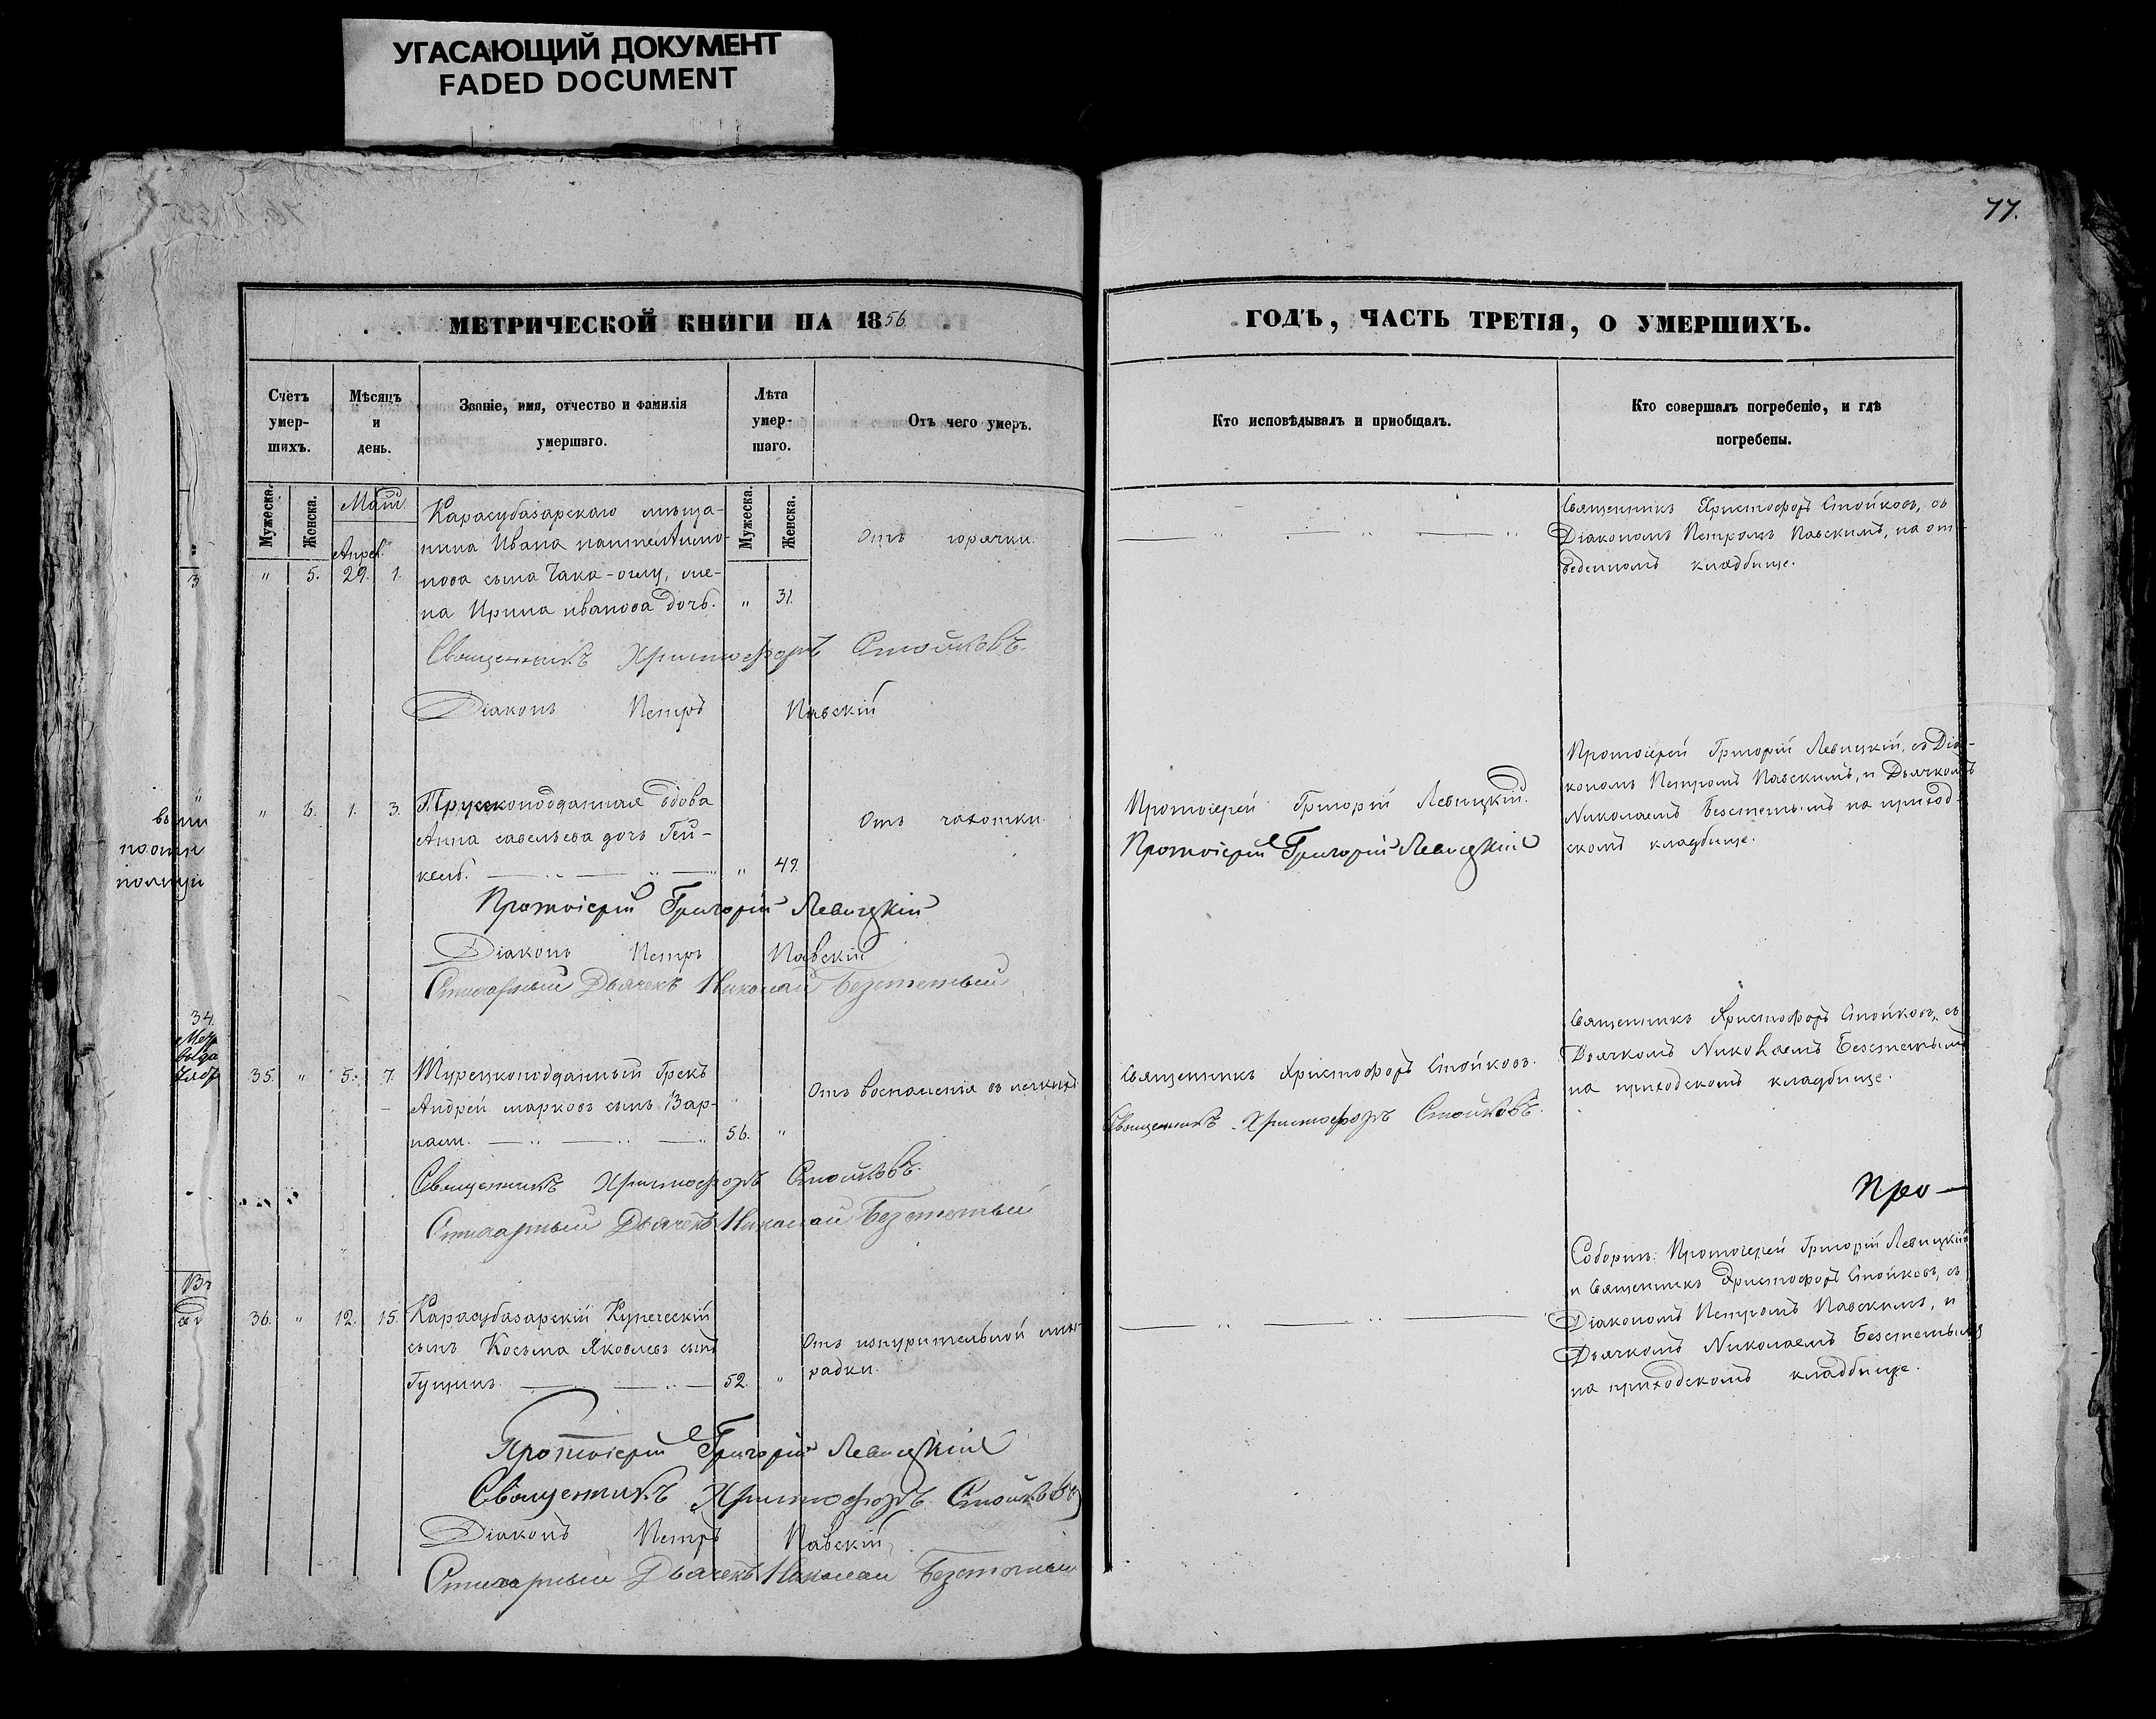 УГАСАЮЩИЙ ДОКУМЕНТ
FADED DOCUMENT
77.
МЕТРИЧЕСКОЙ КНИГИ НА 1856
ГОДЪ, ЧАСТЬ ТРЕТІЯ, О УМЕРШИХЪ.
Счетъ
умер-
шихъ.
Мѣсяцъ
и
день.
Званіе, имя, отчество и фамилія
умершаго.
Лѣта
умер-
шаго.
Отъ чего умеръ.
Кто исповѣдывалъ и пріобщалъ.
Кто совершалъ погребеніе, и гдѣ
погребены.
Мужеска.
Женска.
Маій
Апрел.
Мужеска.
Женска.
" 5. 29. 1.
Карасубазарскаго мѣща-
нина Ивана
сына Чака-оглу, же-
на Ирина иванова дочь. " 31.
Отъ горячки.
Священникъ Христофоръ Стойковъ, съ
Діакономъ Петромъ Павскимъ, на от-
веденномъ кладбище.
Священникъ Христофоръ Стойковъ.
Діаконъ Петръ Павскій
" 6. 1. 3.
Прускоподданная вдова
Анна савельева дочь Гей-
кель. " 49.
Отъ чахотки.
Протоіерей Григорій Левицкій.
Протоіерей Григорій Левицкій
Протоіерей Григорій Левицкій, съ Діа-
кономъ Петромъ Павскимъ, и Дьячкомъ
Николаемъ Безсметнымъ на приход-
скомъ кладбище.
Протоіерей Григорій Левицкій
Діаконъ Петръ Павскій
Стихарный Дьячекъ Николай Безсметный
34.
35. " 5. 7.
Турецкоподданный Грекъ
Андрей марковъ сынъ Вар-
56. "
Отъ воспаленія въ легкихъ
Священникъ Христофоръ Стойковъ.
Священникъ Христофоръ Стойковъ.
Священникъ Христофоръ Стойковъ, съ
Дьячкомъ Николаемъ Безсметнымъ
на приходскомъ кладбище.
Священникъ Христофоръ Стойковъ.
Стихарный Дьячекъ Николай Безсметный
Про—
36. " 12. 15.
Карасубазарскій Купеческій
сынъ Косьма Яковлевъ сынъ
Гущинъ. 52. "
Отъ изнурительной лихо-
радки.
Соборнѣ: Протоіерей Григорій Левицкій
и Священникъ Христофоръ Стойковъ, съ
Діакономъ Петромъ Павскимъ, и
Дьячкомъ Николаемъ Безсметнымъ
на приходскомъ кладбище.
Протоіерей Григорій Левицкій
Священникъ Христофоръ Стойковъ
Діаконъ Петръ Павскій
Стихарный Дьячекъ Николай Безсметный